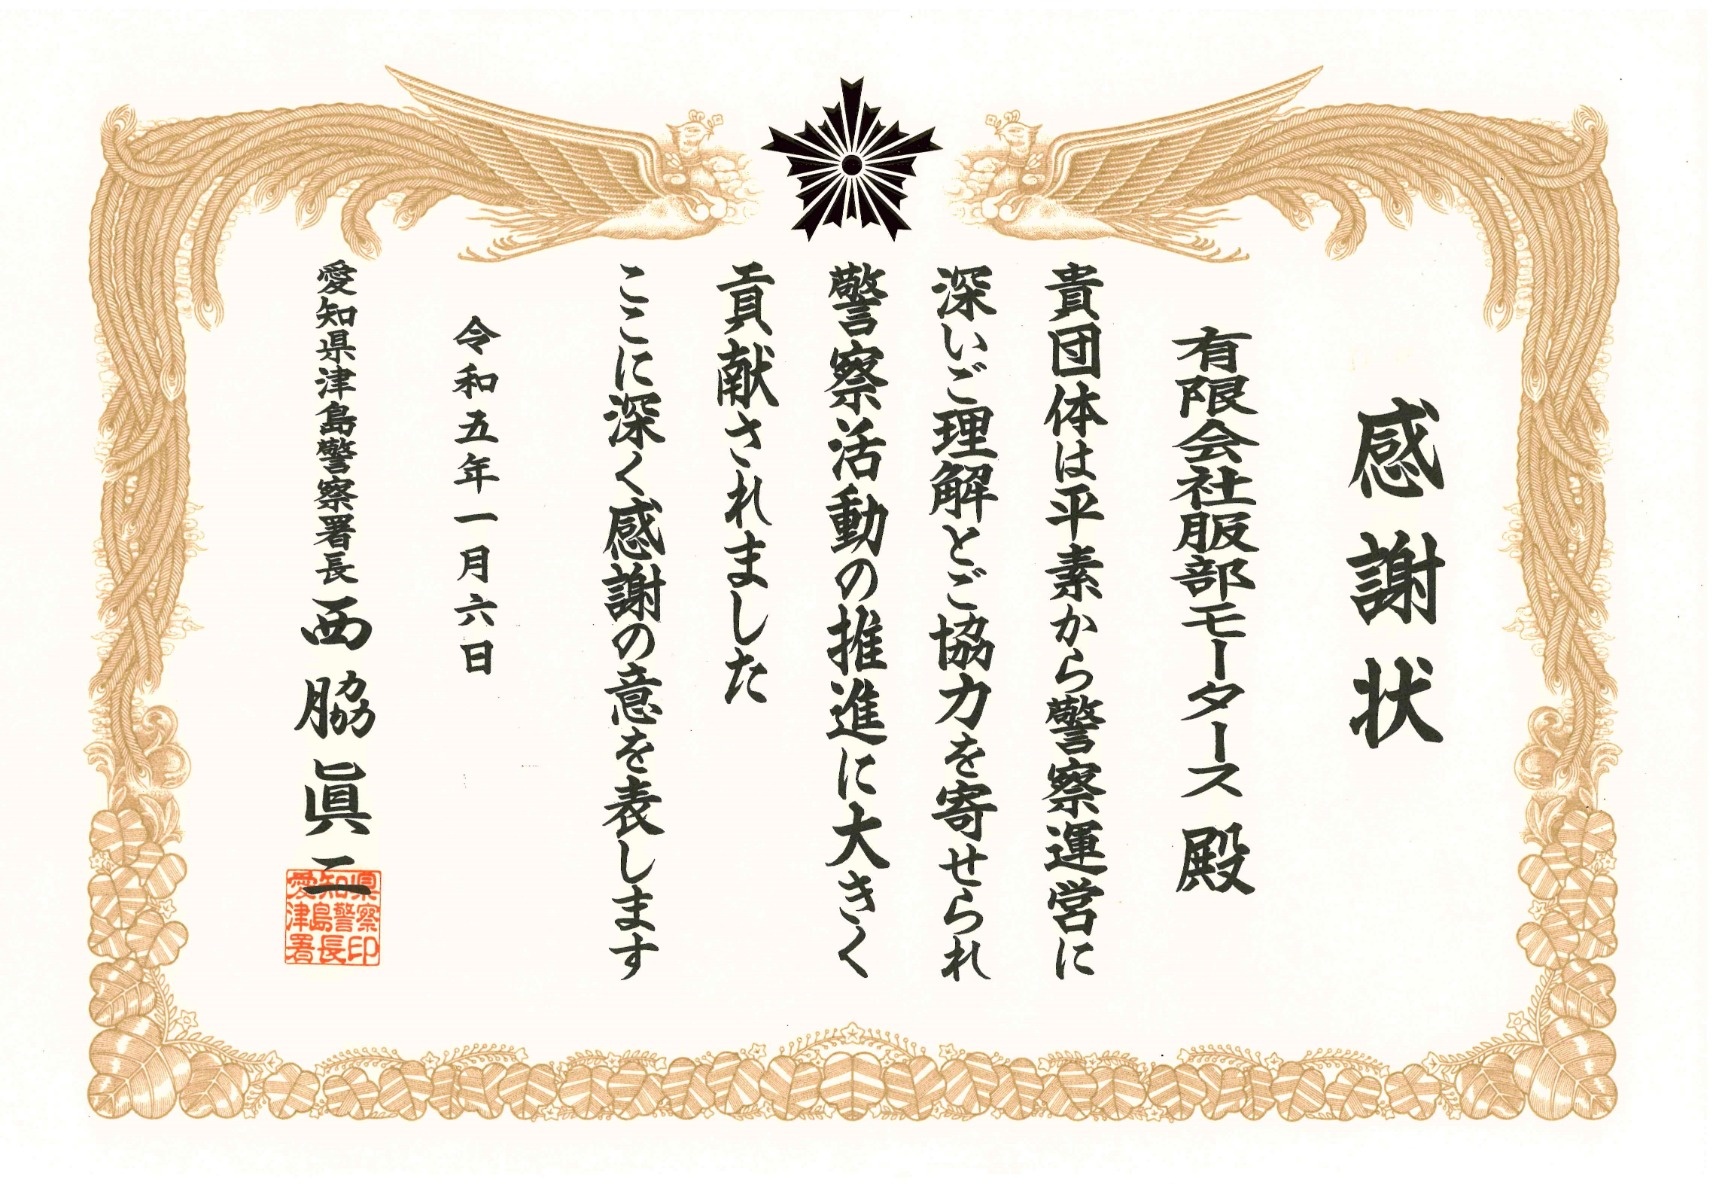 感謝状
有限会社服部モータース 殿
貴団体は平素から警察運営に
深いご理解とご協力を寄せられ
警察活動の推進に大きく
貢献されました
ここに深く感謝の意を表します
令和五年一月六日
愛知県津島警察署長 西脇眞二
愛知県
津島警察
署長印